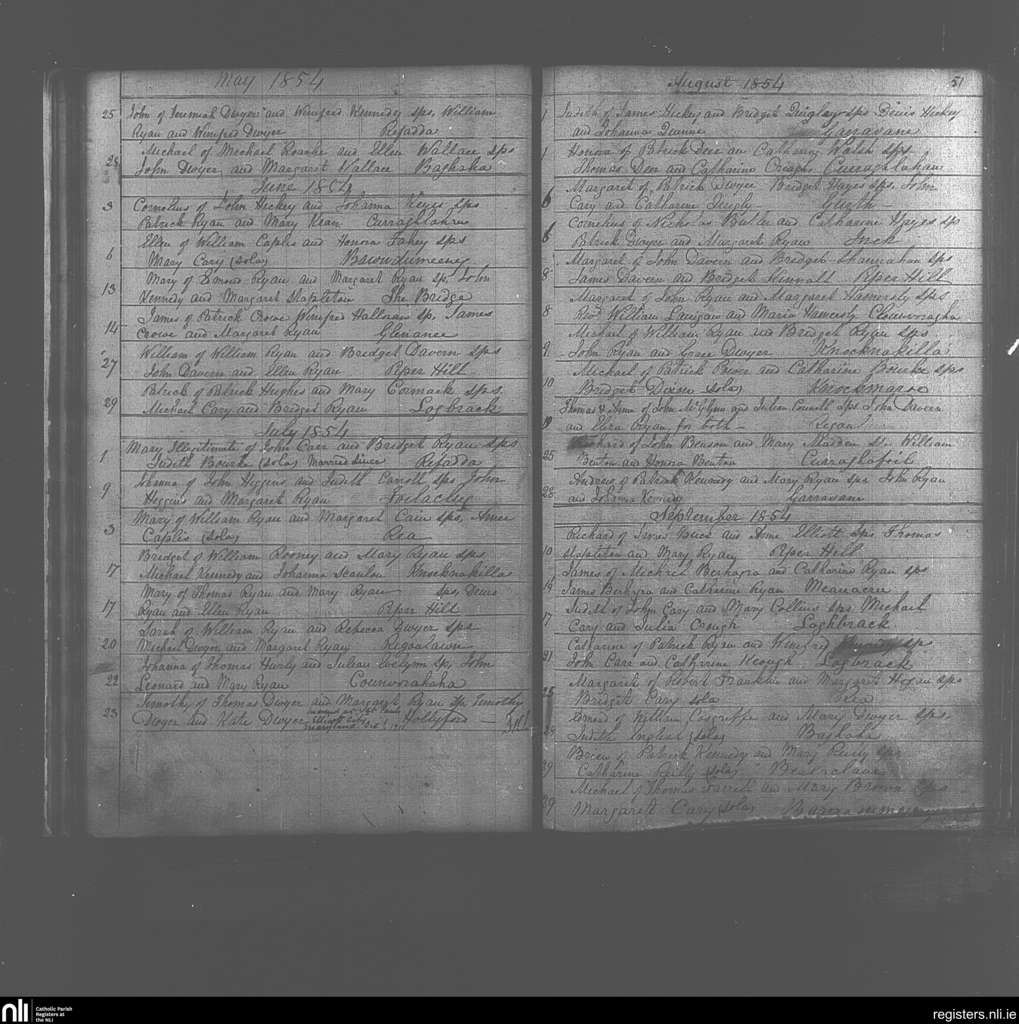 May 1854
25 John of Jeremiah Dwyer and Winifred Kennedy sps William
Ryan and Winifred Dwyer Refadda
28 Michael of Michael Roarke and Ellen Wallace sps
John Dwyer and Margaret Wallace Bashaha
June 1854
3 Cornelius of John Hickey and Johanna Keyes sps
Patrick Ryan and Mary Kean Curraghlaheen
6 Ellen of William Caplis and Honora Fahey sps
Mary Cary (sola)
13 Mary of Edmond Ryan and Margaret Ryan sp. John
Kennedy and Margaret Stapleton The Bridge
14 James of Patrick Crowe Winifred Hallinan sp. James
Crowe and Margaret Ryan Glenanee
27 William of William Ryan and Bridget Davern sps
John Davern and Ellen Ryan Piper Hill
29 Patrick of Patrick Hughes and Mary Cormack sps
Michael Cary and Bridget Ryan Logbrack
July 1854
1 Mary Illegitimate of John Carr and Bridget Ryan sps
Judith Bourke (sola) Married since Refadda
9 Johanna of John Higgins and Judith Carroll sps John
Higgins and Margaret Ryan
3 Mary of William Ryan and Margaret Cain sps, Anne
Caplis (sola) Rea
17 Bridget of William Rooney and Mary Ryan sps
Michael Kennedy and Johanna Scanlon Knocknakilla
17 Mary of Thomas Ryan and Mary Ryan sps, Denis
Ryan and Ellen Ryan Piper Hill
20 Sarah of William Ryan and Rebecca Dwyer sps
Michael Dwyer and Margaret Ryan
22 Johanna of Thomas Hurly and Julian sps John
Leonard and Mary Ryan
23 Timothy of Thomas Dwyer and Margaret Ryan sps Timothy
Dwyer and Kate Dwyer Hollyford
August 1854 51
1 Judith of James Hickey and Bridget Quigley sps Denis Hickey
and Johanna Garravane
1 Honora of Patrick Dee and Catherine Walsh sps
Thomas Dee and Catharine Creagh Curraghlaheen
6 Margaret of Patrick Dwyer Bridget Hayes sps. John
Cary and Catharine Quigly
6 Cornelius of Nicholas Butler and Catharine Hayes sps
Patrick Dwyer and Margaret Ryan Inch
8 Margaret of John Davern and Bridget Shannahan sps
James Davern and Bridget Piper Hill
8 Margaret of John Ryan and Margaret Hammersly sps
Revd William Lanigan and Maria
9 Michael of William Ryan and Bridget Ryan sps
John Ryan and Grace Dwyer Knocknakilla
10 Michael of Patrick Power and Catharine Bourke sps
Bridget Dixon (sola)
19 Thomas & Anne of John McGlynn and Julian Connell sps John Davern
and Eliza Ryan for both Regan
25 of John Benson and Mary Madden sp. William
Benton and Honora Benton
28 Andrew of Patrick Kennedy and Mary Ryan sps John Ryan
and Johanna Garravane
September 1854
10 Richard of and Anne Elliott sps Thomas
Stapleton and Mary Ryan Piper Hill
14 James of Michael Berhagra and Catharine Ryan sps
James Berhagra and Catharine Ryan Meanacree
17 Judith of John Cary and Mary Collins sps Michael
Cary and Julia Creugh Loghbrack
21 Catharine of Patrick Ryan and Winifred sps
John Carr and Catharine Keough Logbrack
28 Margaret of Robert Franklin and Margaret Hogan sps
Bridget Cary sola Rea
29 of William Cosgriffe and Mary Dwyer sps
Judith English (sola) Bashaha
29 of Patrick Kennedy and Mary Reily sps
Catharine Reilly (sola)
29 Michael of Thomas and Mary Brown sps
Margaret Cary (sola)
nli Catholic Parish
Registers at
the NLI
registers.nli.ie